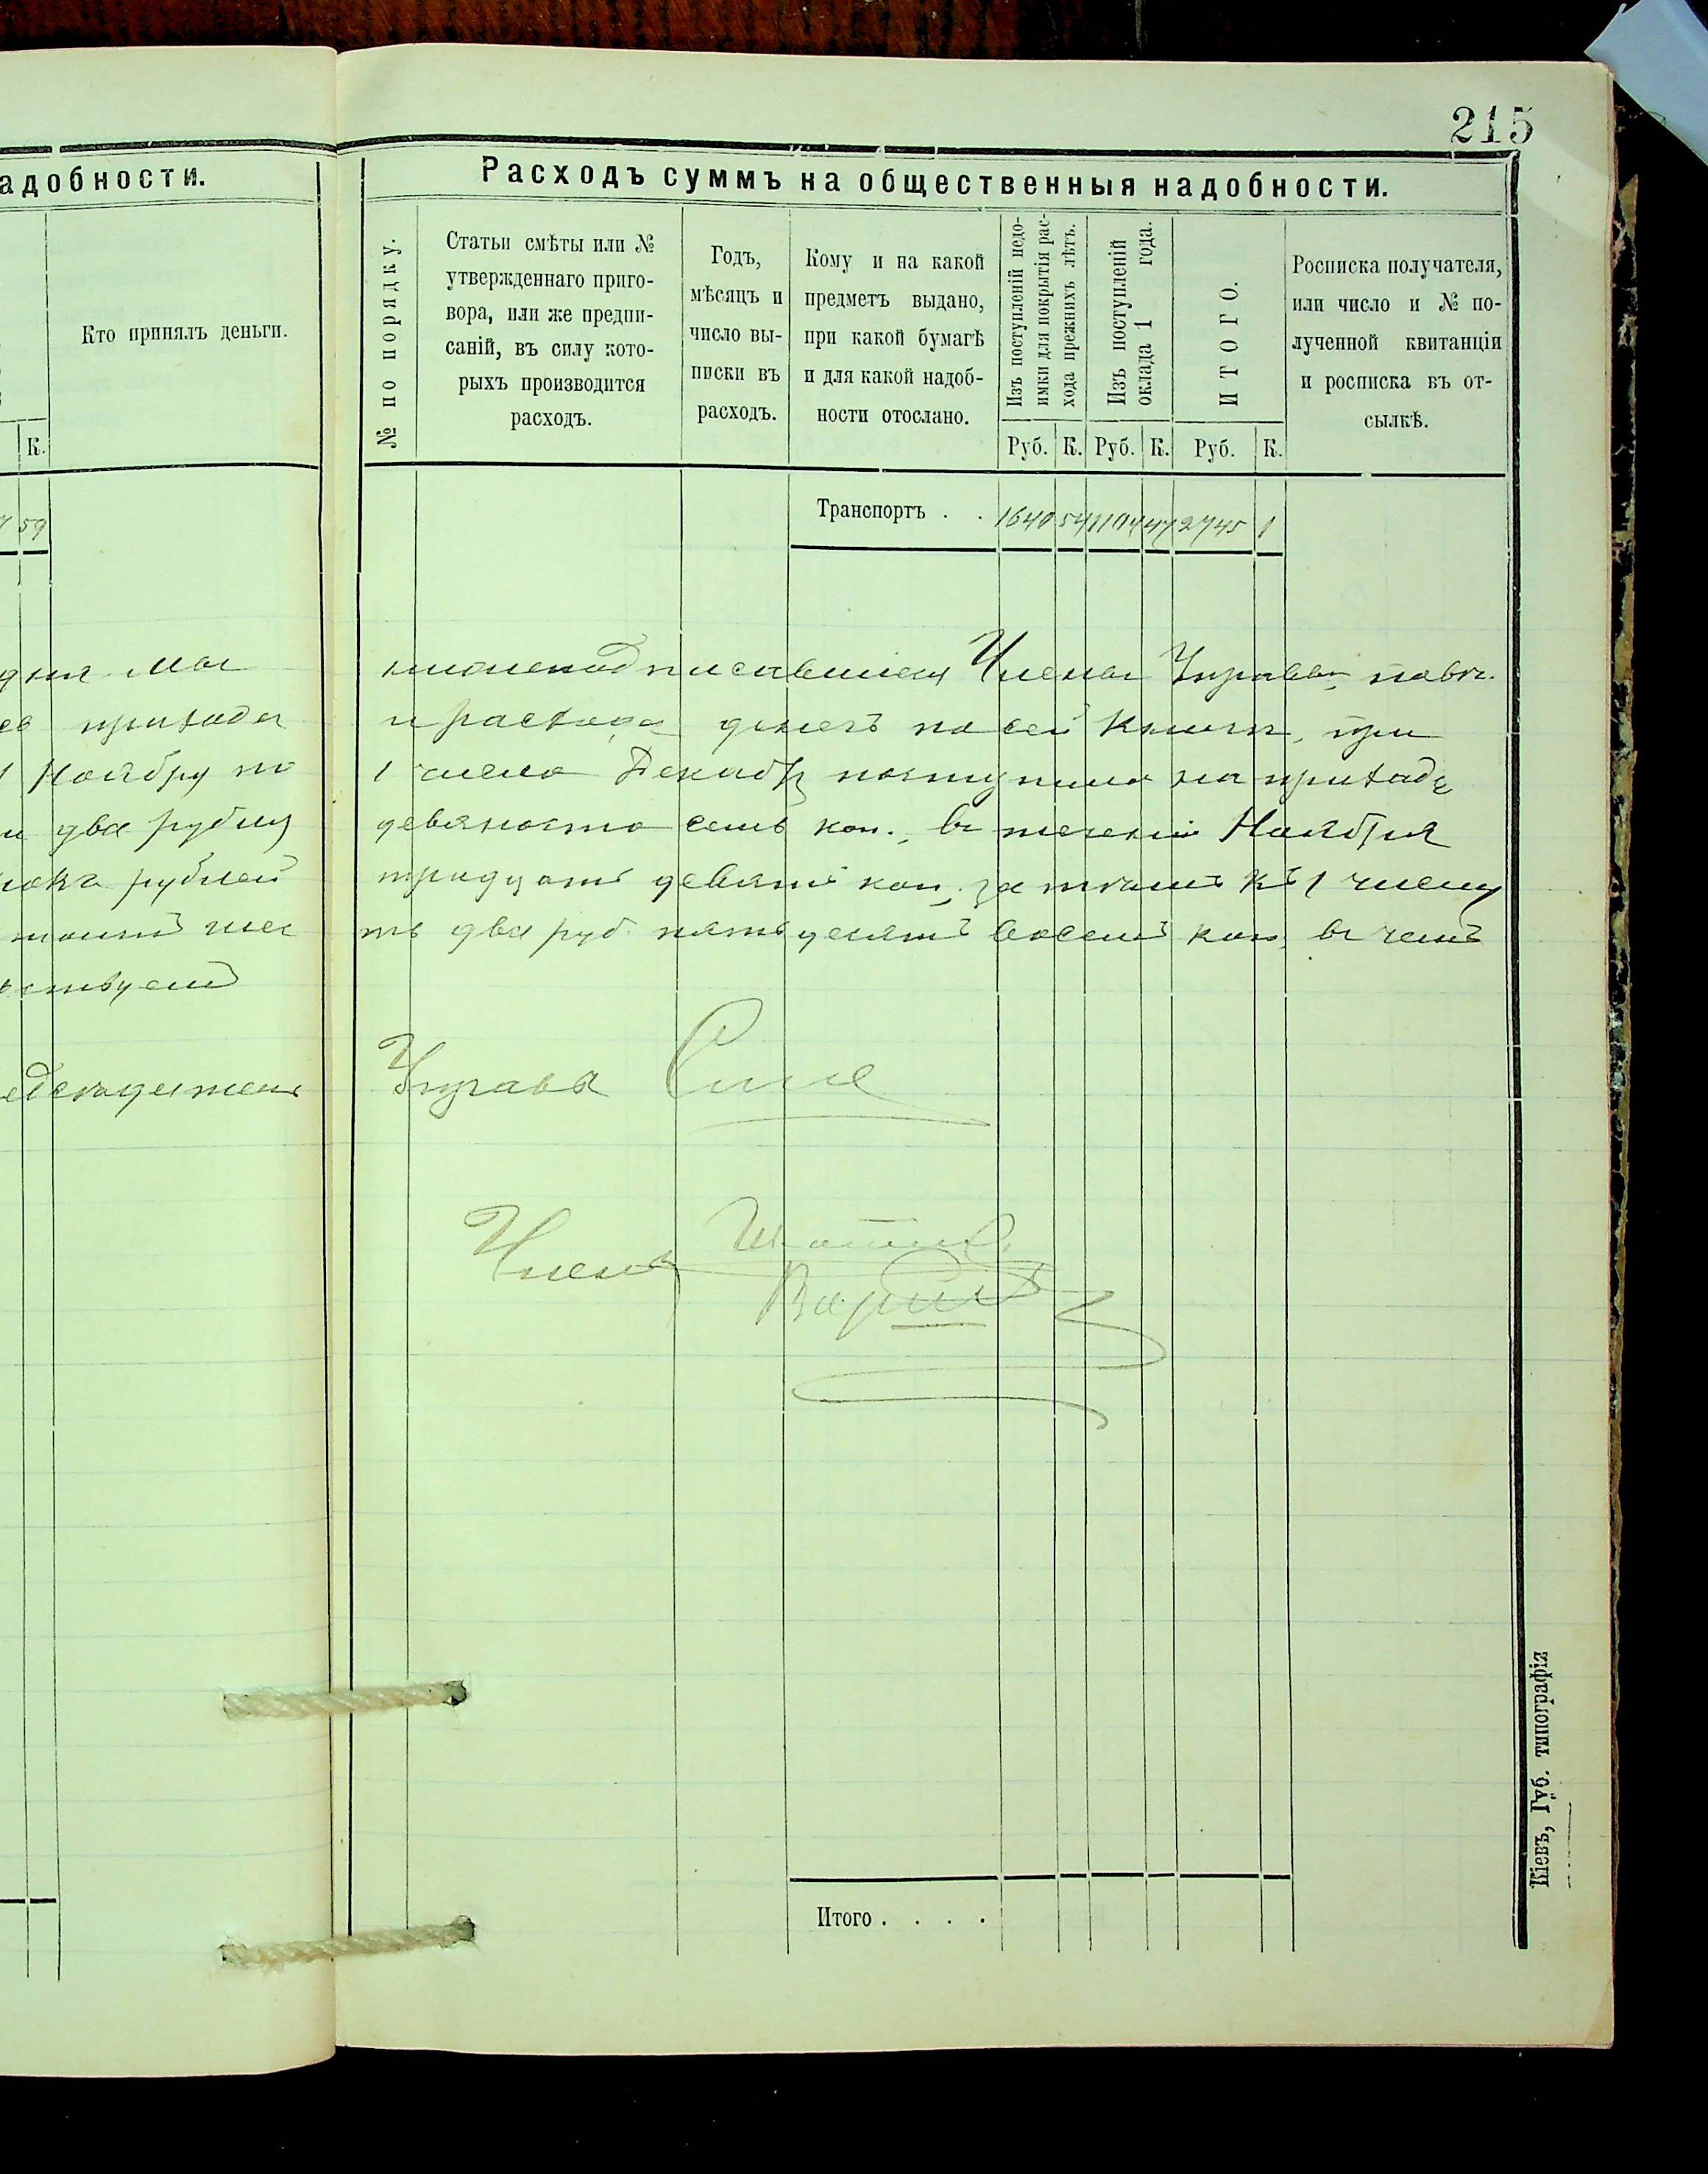 215
адобности.
Кто принялъ деньги.
К.
59
мы
прихода
1 Ноября по
два рубля
рублей
Расходъ суммъ на общественныя надобности.
№ по порядку.
Статьи смѣты или №
утвержденнаго приго-
вора, или же предпи-
саній, въ силу кото-
рыхъ производится
расходъ.
Годъ,
мѣсяцъ и
число вы-
писки въ
расходъ.
Кому и на какой
предметъ выдано,
при какой бумагѣ
и для какой надоб-
ности отослано.
Изъ поступленій недо-
имки для покрытія рас-
хода прежнихъ лѣтъ.
Изъ поступленій
оклада 1 года.
ИТОГО.
Руб. К. Руб. К. Руб. К.
Росписка получателя,
или число и № по-
лученной квитанціи
и росписка въ от-
сылкѣ.
Транспортъ . . 1640 54 1104 47 2745 1
Члены Управы
и расхода денегъ по сей книги, при
1 числа Декабря поступило на приходъ
девяносто семь коп., въ теченіи Ноября
тридцать девять коп., затѣмъ къ 1 числу
ть два руб. пятьдесятъ восемь коп. въ чемъ
Управы
Члены
Итого . . . .
Кіевъ, Губ. типографія